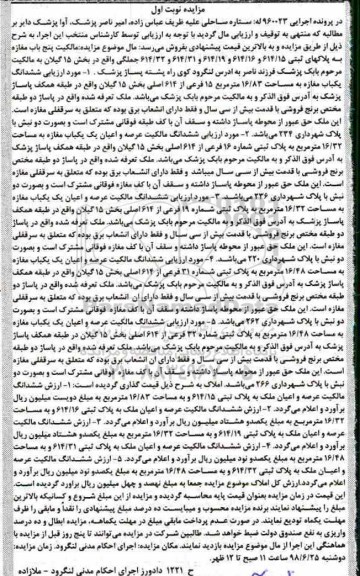 مزایده نوبت اول
در پرونده اجرایی ۹۶۰۰۲۳ له: ستاره ساحلی علیه ظریف عباس زاده، امیر ناصر پزشک، آوا پزشک دایر بر
مطالبه که منتهی به توقیف و ارزیابی مال گردید با توجه به ارزیابی توسط کارشناس منتخب این اجرا، به شرح
ذیل از طریق مزایده و به بالاترین قیمت پیشنهادی بفروش می‌رسد: مال موضوع مزایده: مالکیت پنج باب مغازه
به پلاکهای ثبتی ۶۱۴/۱۵ و ۶۱۴/۱۶ و ۶۱۴/۱۹ و ۶۱۴/۳۱ و ۶۱۴/۳۲ جملگی واقع در بخش ۱۵ گیلان به مالکیت
مرحوم بابک پزشک فرزند ناصر به آدرس لنگرود کوی راه پشته پاساژ پزشک. ۱- مورد ارزیابی ششدانگ
یکباب مغازه به مساحت ۱۶/۸۳ مترمربع ۱۵ فرعی از ۶۱۴ اصلی بخش ۱۵ گیلان واقع در طبقه همکف پاساژ
پزشک به آدرس فوق الذکر و به مالکیت مرحوم بابک پزشک می‌باشد. ملک تعرفه شده واقع در پاساژ دو طبقه
مختص برنج فروشی با قدمت بیش از سی سال و فقط دارای انشعاب برق بوده که متعلق به سرقفلی مغازه است.
این ملک حق عبور از محوطه پاساژ داشته و سقف آن با کف طبقه فوقانی مشترک است و بصورت دو نبش با
پلاک شهرداری ۲۳۴ می‌باشد. ۲- مورد ارزیابی ششدانگ مالکیت عرصه و اعیان یک یکباب مغازه به مساحت
۱۶/۳۲ مترمربع به پلاک ثبتی شماره ۱۶ فرعی از ۶۱۴ اصلی بخش ۱۵ گیلان واقع در طبقه همکف پاساژ پزشک
به آدرس فوق الذکر و به مالکیت مرحوم بابک پزشک می‌باشد. ملک تعرفه شده واقع در پاساژ دو طبقه مختص
برنج فروشی با قدمت بیش از سی سال میباشد و فقط دارای انشعاب برق بوده که متعلق به سرقفلی مغازه
است. این ملک حق عبور از محوطه پاساژ داشته و سقف آن با کف مغازه فوقانی مشترک است و بصورت دو
نبش با پلاک شهرداری ۲۳۶ می‌باشد. ۳- مورد ارزیابی ششدانگ مالکیت عرصه و اعیان یک یکباب مغازه
به مساحت ۱۶/۳۲ مترمربع به پلاک ثبتی شماره ۱۹ فرعی از ۶۱۴ اصلی بخش ۱۵ گیلان واقع در طبقه همکف
پاساژ پزشک به آدرس فوق الذکر و به مالکیت مرحوم بابک پزشک می‌باشد. ملک تعرفه شده واقع در پاساژ
دو طبقه مختص برنج فروشی با قدمت بیش از سی سال و فقط دارای انشعاب برق بوده که متعلق به سرقفلی
مغازه است. این ملک حق عبور از محوطه پاساژ داشته و سقف آن با کف مغازه فوقانی مشترک است و بصورت
دو نبش با پلاک شهرداری ۲۲۰ می‌باشد. ۴- مورد ارزیابی ششدانگ مالکیت عرصه و اعیان یک یکباب مغازه
به مساحت ۱۶/۴۸ مترمربع به پلاک ثبتی شماره ۳۱ فرعی از ۶۱۴ اصلی بخش ۱۵ گیلان واقع در طبقه همکف
پاساژ پزشک به آدرس فوق الذکر و به مالکیت مرحوم بابک پزشک می‌باشد. ملک تعرفه شده واقع در پاساژ دو
طبقه مختص برنج فروشی با قدمت بیش از سی سال و فقط دارای انشعاب برق بوده که متعلق به سرقفلی
مغازه است. این ملک حق عبور از محوطه پاساژ داشته و سقف آن با کف مغازه فوقانی مشترک است و بصورت
دو نبش با پلاک شهرداری ۲۶۲ می‌باشد. ۵- مورد ارزیابی ششدانگ مالکیت عرصه و اعیان یک یکباب مغازه
به مساحت ۱۶/۴۸ مترمربع به پلاک ثبتی شماره ۳۲ فرعی از ۶۱۴ اصلی بخش ۱۵ گیلان در طبقه همکف پاساژ
پزشک به آدرس فوق الذکر و به مالکیت مرحوم بابک پزشک می‌باشد. ملک تعرفه شده واقع در پاساژ دو طبقه
مختص برنج فروشی با قدمت بیش از سی سال و فقط دارای انشعاب برق بوده که متعلق به سرقفلی مغازه
است. این ملک حق عبور از محوطه پاساژ داشته و سقف آن با کف مغازه فوقانی مشترک است و بصورت دو
نبش با پلاک شهرداری ۲۶۶ می‌باشد. املاک به شرح ذیل قیمت گذاری گردیده است: ۱- ارزش ششدانگ
مالکیت عرصه و اعیان ملک به پلاک ثبتی ۶۱۴/۱۵ و به مساحت ۱۶/۸۳ مترمربع به مبلغ دویست میلیون ریال
برآورد و اعلام می‌گردد. ۲- ارزش ششدانگ مالکیت عرصه و اعیان ملک به پلاک ثبتی ۶۱۴/۱۶ و به مساحت
۱۶/۳۲ مترمربع به مبلغ یکصدو هشتاد میلیون ریال برآورد و اعلام می‌گردد. ۳- ارزش ششدانگ مالکیت
عرصه و اعیان ملک به پلاک ثبتی ۶۱۴/۱۹ و به مساحت ۱۶/۳۲ مترمربع به مبلغ یکصدو هشتاد میلیون ریال
برآورد و اعلام می‌گردد. ۴- ارزش ششدانگ مالکیت عرصه و اعیان ملک به پلاک ثبتی ۶۱۴/۳۱ و به مساحت
۱۶/۴۸ مترمربع به مبلغ یکصدو نود میلیون ریال برآورد و اعلام می‌گردد. ۵- ارزش ششدانگ مالکیت عرصه
و اعیان ملک به پلاک ثبتی ۶۱۴/۳۲ و به مساحت ۱۶/۴۸ مترمربع به مبلغ یکصدو نود میلیون ریال برآورد و
اعلام می‌گردد. ارزش کل املاک موضوع مزایده جمعا به مبلغ نهصد و چهل میلیون ریال براورد گردیده است.
این قیمت در زمان مزایده بعنوان قیمت پایه محاسبه گردیده و مزایده از این مبلغ شروع و کسانیکه بالاترین
مبلغ را پیشنهاد نمایند برنده مزایده محسوب و میبایست ده درصد مبلغ پیشنهادی را نقداً و مابقی را ظرف
مهلت یکماه تودیع نمایند. در صورت عدم پرداخت مابقی مبلغ در مهلت یکماهه، مزایده ابطال و ده درصد
واریزی به نفع صندوق دولت ضبط خواهد شد. طالبین شرکت در مزایده می‌توانند تا پنج روز قبل از مزایده با
هماهنگی این اجرا از مال موضوع مزایده بازدید نمایند. مکان مزایده: اجرای احکام مدنی لنگرود. زمان مزایده:
دوشنبه ۹۸/۶/۲۵ ساعت ۱۱ صبح تا ۱۲ ظهر.
ح ۱۲۲۱ دادورز اجرای احکام مدنی لنگرود - ملازاده